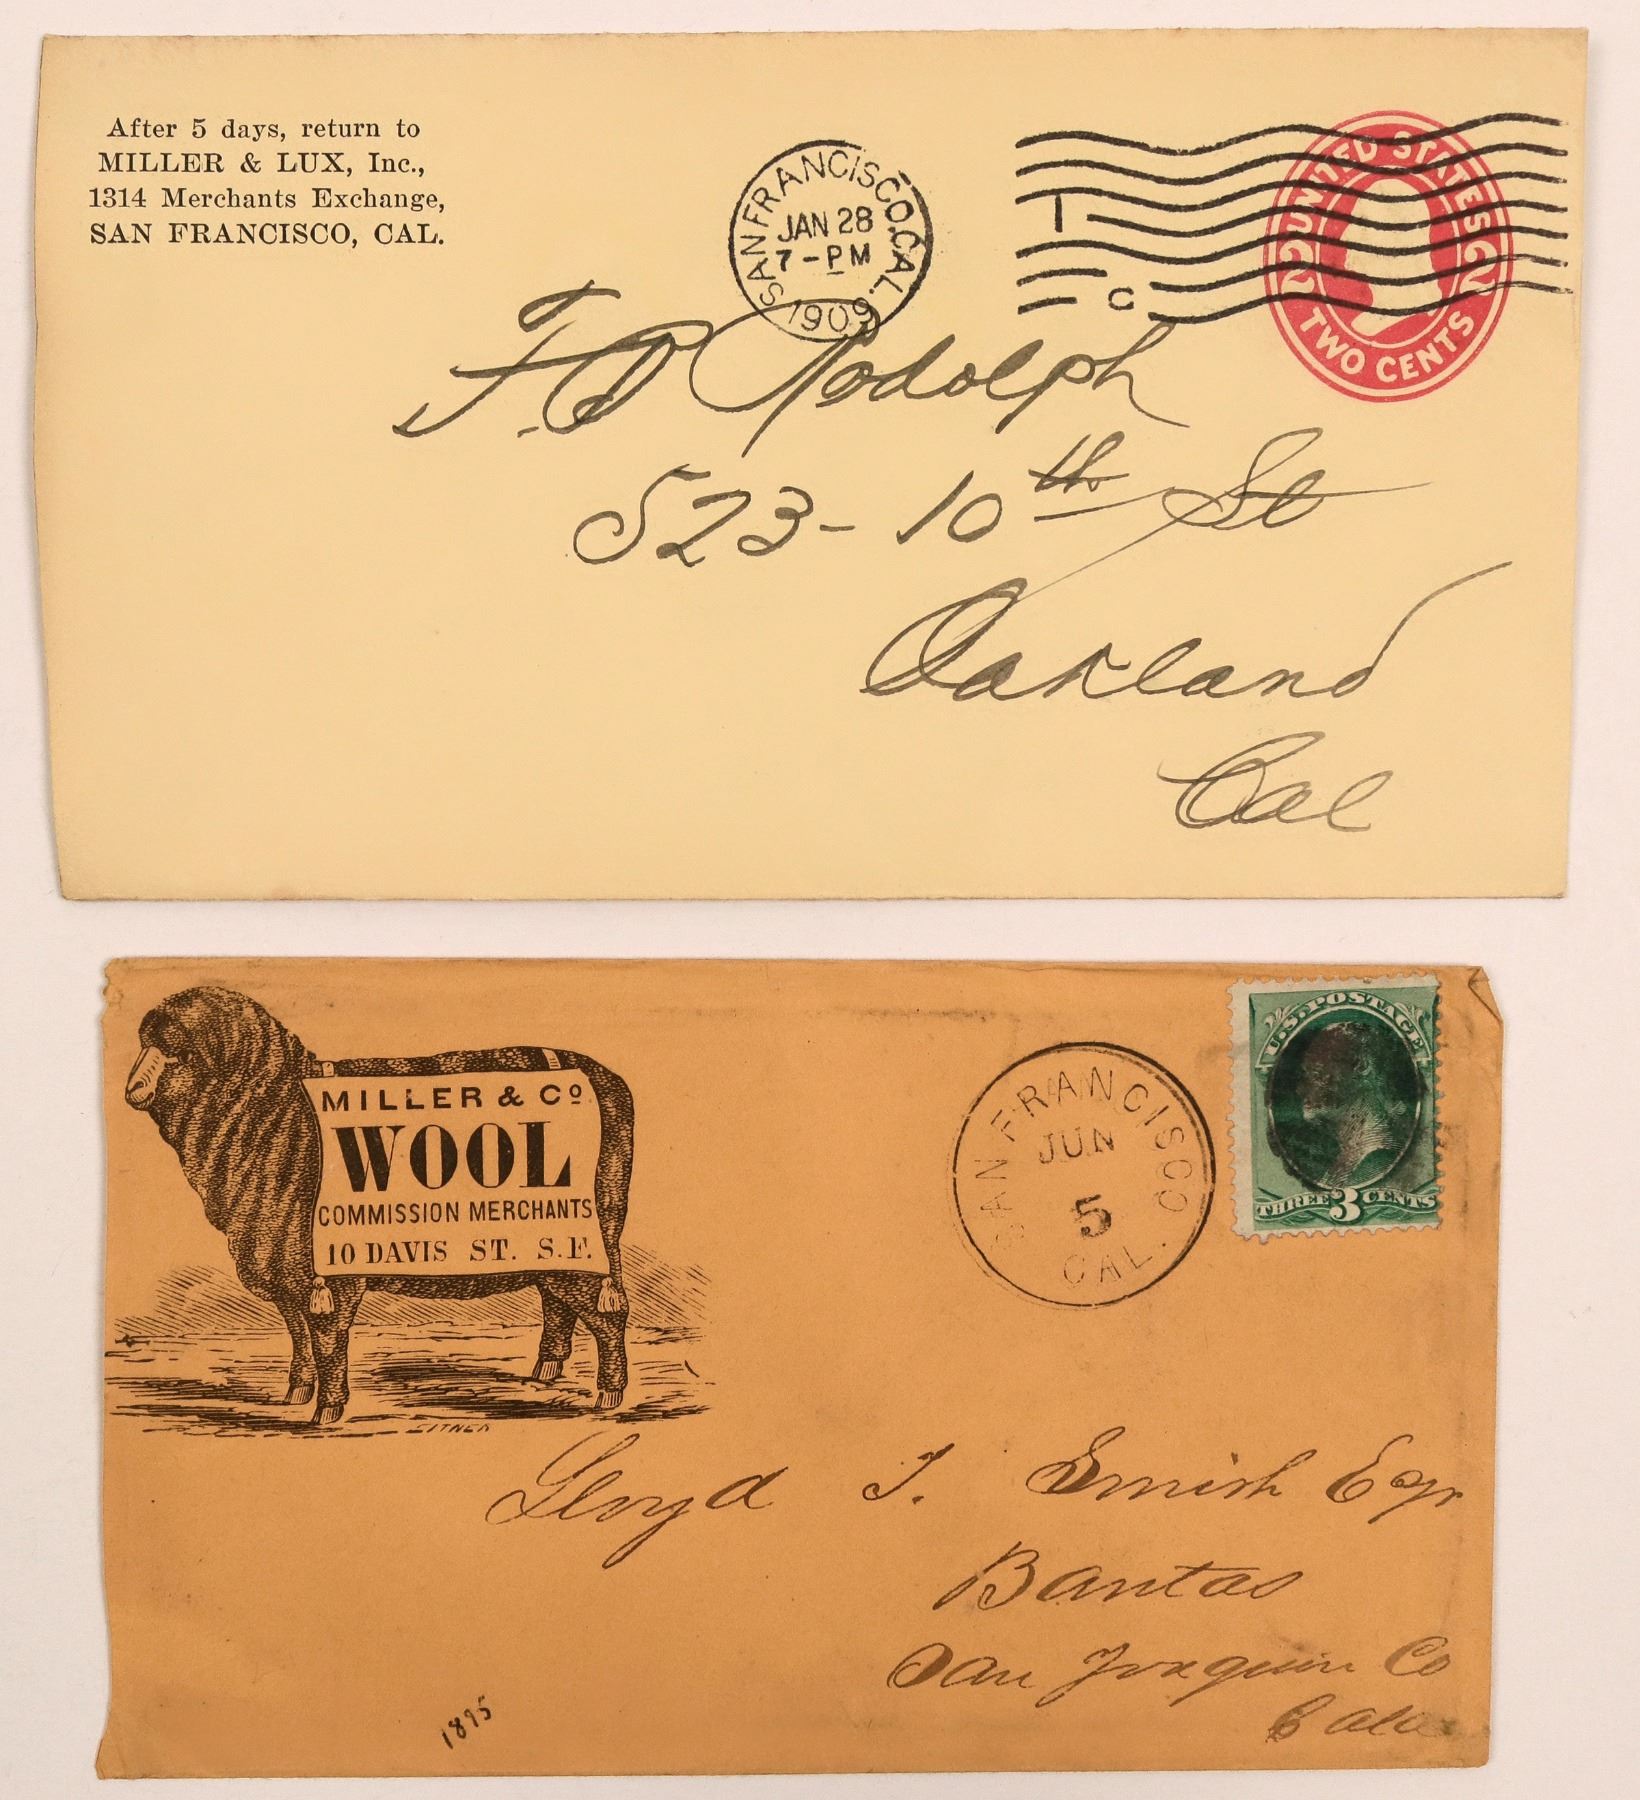 After 5 days, return to
MILLER & LUX, Inc.,
1314 Merchants Exchange,
SAN FRANCISCO, CAL.
SAN FRANCISCO, CAL.
JAN 28
7-PM
1909
1
C
UNITED STATES
2 2
TWO CENTS
F. O Rodolph
523-10th St
Oakland
Cal
MILLER & Co.
WOOL
COMMISSION MERCHANTS
10 DAVIS ST. S.F.
EITNER
SAN FRANCISCO
JUN
5
CAL.
U.S. POSTAGE
THREE 3 CENTS
Lloyd T. Smith Esqr
Bantas
San Joaquin Co
1875